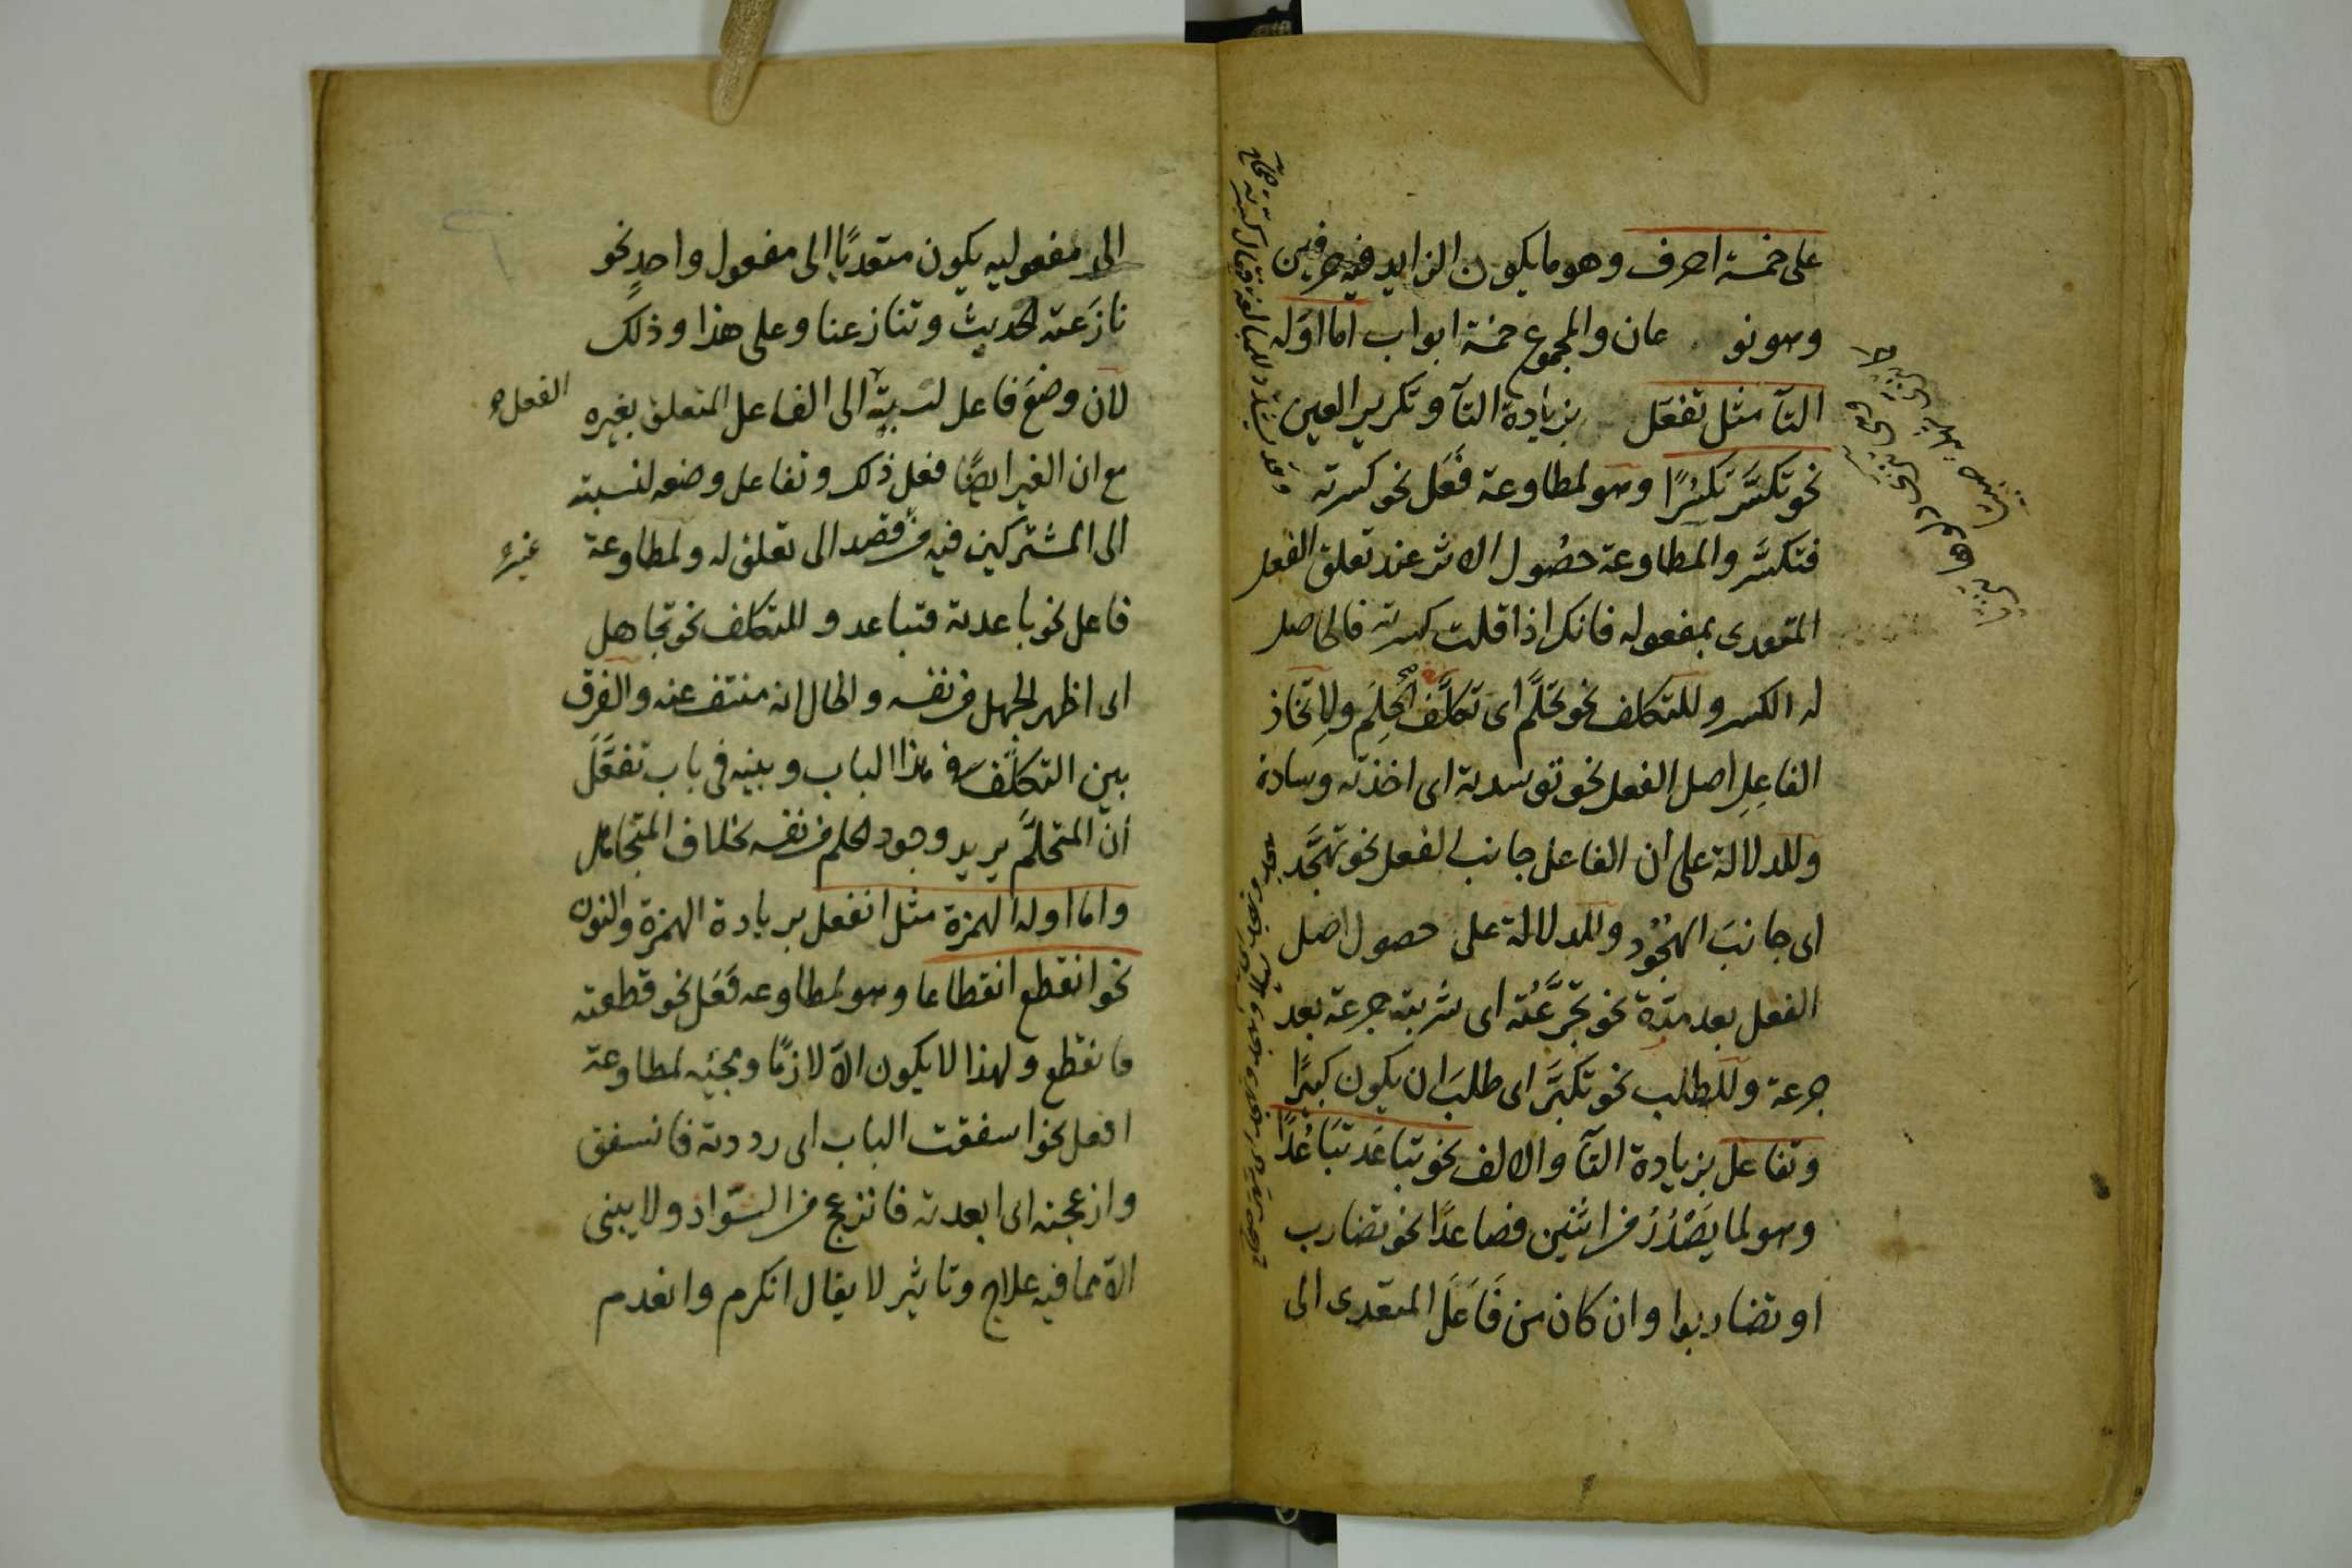 على خمسة احرف وهو ما يكون الزايد فيه حرفين
وهو نو عان والمجموع خمسة ابواب اما اوله
التآ مثل تفعّل بزيادة التآ وتكرير العين
نحو تكسَّر تكسُّرًا وهو لمطاوعة فعَّل نحو كسرته
فتكسَّر والمطاوعة حصُول الاثر عند تعلق الفعل
المتعدى بمفعوله فانك اذا قلت كسرته فالحاصل
له الكسر وللتكلف نحو تحلَّم اى تكلَّف الحِلمَ ولاِتخاذ
الفاعِلِ اصل الفعل نحو توسدته اى اخذته وسادة
وللدلالة على ان الفاعل جانب الفعل نحو تهجَّد
اى جانبَ الهجُود وللدلالة على حصول اصل
الفعل بعد مدة نحو تجرَّعْتُه اى شربته جرعة بعد
جرعة وللطلب نحو تكبَّرَ اى طلبَ ان يكون كبيرًا
وتفاعل بزيادة التآ والالف نحو تباعَد تبَاعُدًا
وهو لما يَصْدُرُ من اثنين فصاعدًا نحو تضارب
او تضاربوا وان كان من فَاعَلَ المتعدى الى
الى مفعولين يكون متعديًا الى مفعول واحدٍ نحو
نازَعته الحديث وتنازعنا وعلى هذا وذلك
لان وضعَ فاعل لنسبة الى الفاعل المتعلق بغيره
الفعل
مع ان الغير ايضًا فعل ذلك وتفاعل وضعه لنسبته
الى المشتركين فيه من قصد الى تعلق له ولمطاوعة
غير
فاعل نحو باعدته فتباعد وللتكلف نحو تجاهل
اى اظهر الجهل من نفسه والحال انه منتف عنه والفرق
بين التكلّف فى هذا الباب وبينه فى باب تفعَّلَ
انّ المتحلّم يريد وجود الحلم من نفسه بخلاف المتجاهل
واما اوله الهمزة مثل انفعل بزيادة الهمزة والنون
نحو انقطع انقطاعا وهو لمطاوعه فَعَل نحو قطعته
فانقطع ولهذا لا يكون الاّ لازمًا ومجئه لمطاوعة
افعل نحو اسفقت الباب اى رددته فانسفق
وازعجته اى ابعدته فانزعج من الشّواذ ولا يبنى
الاّ مما فيه علاج وتاثير لا يقال انكرم وانعدم